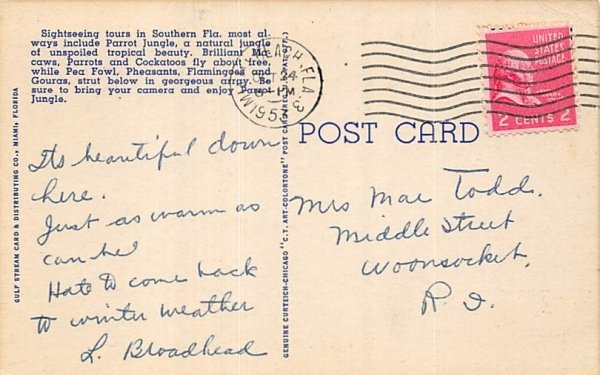 Sightseeing tours in Southern Fla. most al-
ways include Parrot Jungle, a natural jungle
of unspoiled tropical beauty. Brilliant Ma-
caws, Parrots and Cockatoos fly about free,
while Pea Fowl, Pheasants, Flamingoes and
Gouras, strut below in gorgeous array. Be
sure to bring your camera and enjoy Parrot
Jungle.
GULF STREAM CARD & DISTRIBUTING CO., MIAMI, FLORIDA
Its beautiful down
here.
Just as warm as
can be!
Hate to come back
to winter weather
L. Broadhead
GENUINE CURTEICH-CHICAGO "C.T. ART-COLORTONE" POST CARD (REG. U.S. PAT. OFF.)
BEACH, FLA. 3
24
PM
195
POST CARD
UNITED
STATES
POSTAGE
2 CENTS 2
Mrs Mae Todd.
Middle Street
Woonsocket,
R. I.